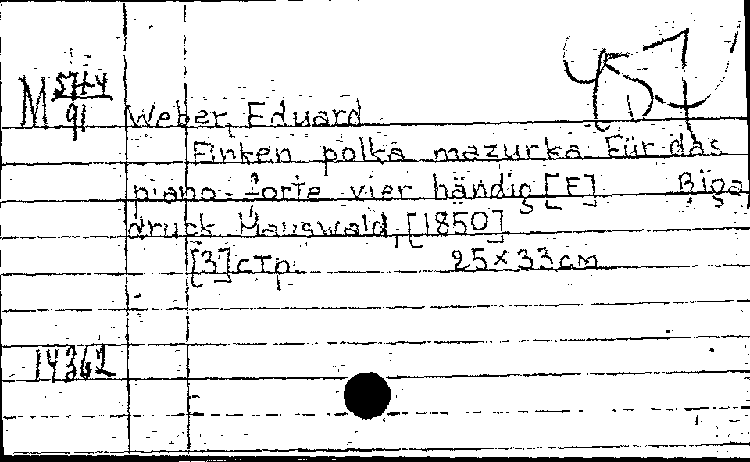 M 57-4/91
Weber, Eduard
Finken polka mazurka. Für das
piano-forte vier händig [F] Riga
druck Mauswald, [1850]
[3] стр. 25×33 см
14362